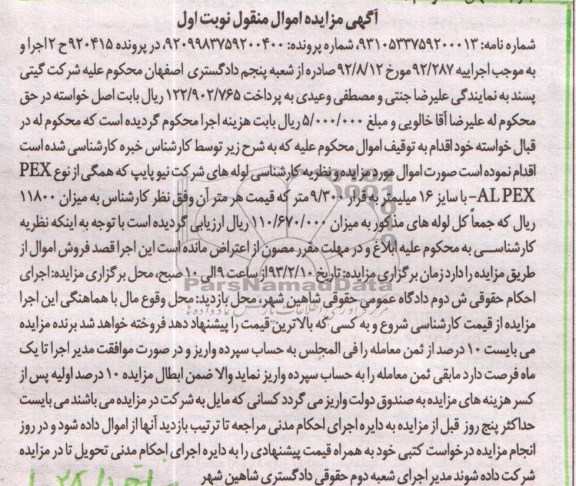 آگهی مزایده اموال منقول نوبت اول
شماره نامه: ۹۳۱۰۵۳۳۷۵۹۲۰۰۰۱۳، شماره پرونده: ۹۲۰۹۹۸۳۷۵۹۲۰۰۴۰۰، در پرونده ۹۲۰۴۱۵ ح ۲ اجرا و
به موجب اجراییه ۹۲/۲۸۷ مورخ ۹۲/۸/۱۲ صادره از شعبه پنجم دادگستری اصفهان محکوم علیه شرکت گیتی
پسند به نمایندگی علیرضا جنتی و مصطفی وعیدی به پرداخت ۱۲۲/۹۰۲/۷۶۵ ریال بابت اصل خواسته در حق
محکوم له علیرضا آقا خالویی و مبلغ ۵/۰۰۰/۰۰۰ ریال بابت هزینه اجرا محکوم گردیده است که محکوم له در
قبال خواسته خود اقدام به توقیف اموال محکوم علیه که به شرح زیر توسط کارشناس خبره کارشناسی شده است
اقدام نموده است صورت اموال مورد مزایده و نظریه کارشناسی لوله های شرکت نیو پایپ که همگی از نوع PEX
AL PEX- با سایز ۱۶ میلیمتر به قرار ۹/۳۰۰ متر که قیمت هر متر آن وفق نظر کارشناس به میزان ۱۱۸۰۰
ریال که جمعاً کل لوله های مذکور به میزان ۱۱۰/۶۷۰/۰۰۰ ریال ارزیابی گردیده است با توجه به اینکه نظریه
کارشناسی به محکوم علیه ابلاغ و در مهلت مقرر مصون از اعتراض مانده است این اجرا قصد فروش اموال از
طریق مزایده را دارد زمان برگزاری مزایده: تاریخ ۹۳/۲/۱۰ از ساعت ۹ الی ۱۰ صبح، محل برگزاری مزایده: اجرای
احکام حقوقی ش دوم دادگاه عمومی حقوقی شاهین شهر، محل بازدید: محل وقوع مال با هماهنگی این اجرا
مزایده از قیمت کارشناسی شروع و به کسی که بالاترین قیمت را پیشنهاد دهد فروخته خواهد شد برنده مزایده
می بایست ۱۰ درصد از ثمن معامله را فی المجلس به حساب سپرده واریز و در صورت موافقت مدیر اجرا تا یک
ماه فرصت دارد مابقی ثمن معامله را به حساب سپرده واریز نماید والا ضمن ابطال مزایده ۱۰ درصد اولیه پس از
کسر هزینه های مزایده به صندوق دولت واریز می گردد کسانی که مایل به شرکت در مزایده می باشند می بایست
حداکثر پنج روز قبل از مزایده به دایره اجرای احکام مدنی مراجعه تا ترتیب بازدید آنها از اموال داده شود و در روز
انجام مزایده درخواست کتبی خود به همراه قیمت پیشنهادی را به دایره اجرای احکام مدنی تحویل تا در مزایده
شرکت داده شوند مدیر اجرای شعبه دوم حقوقی دادگستری شاهین شهر
ParsNamadData